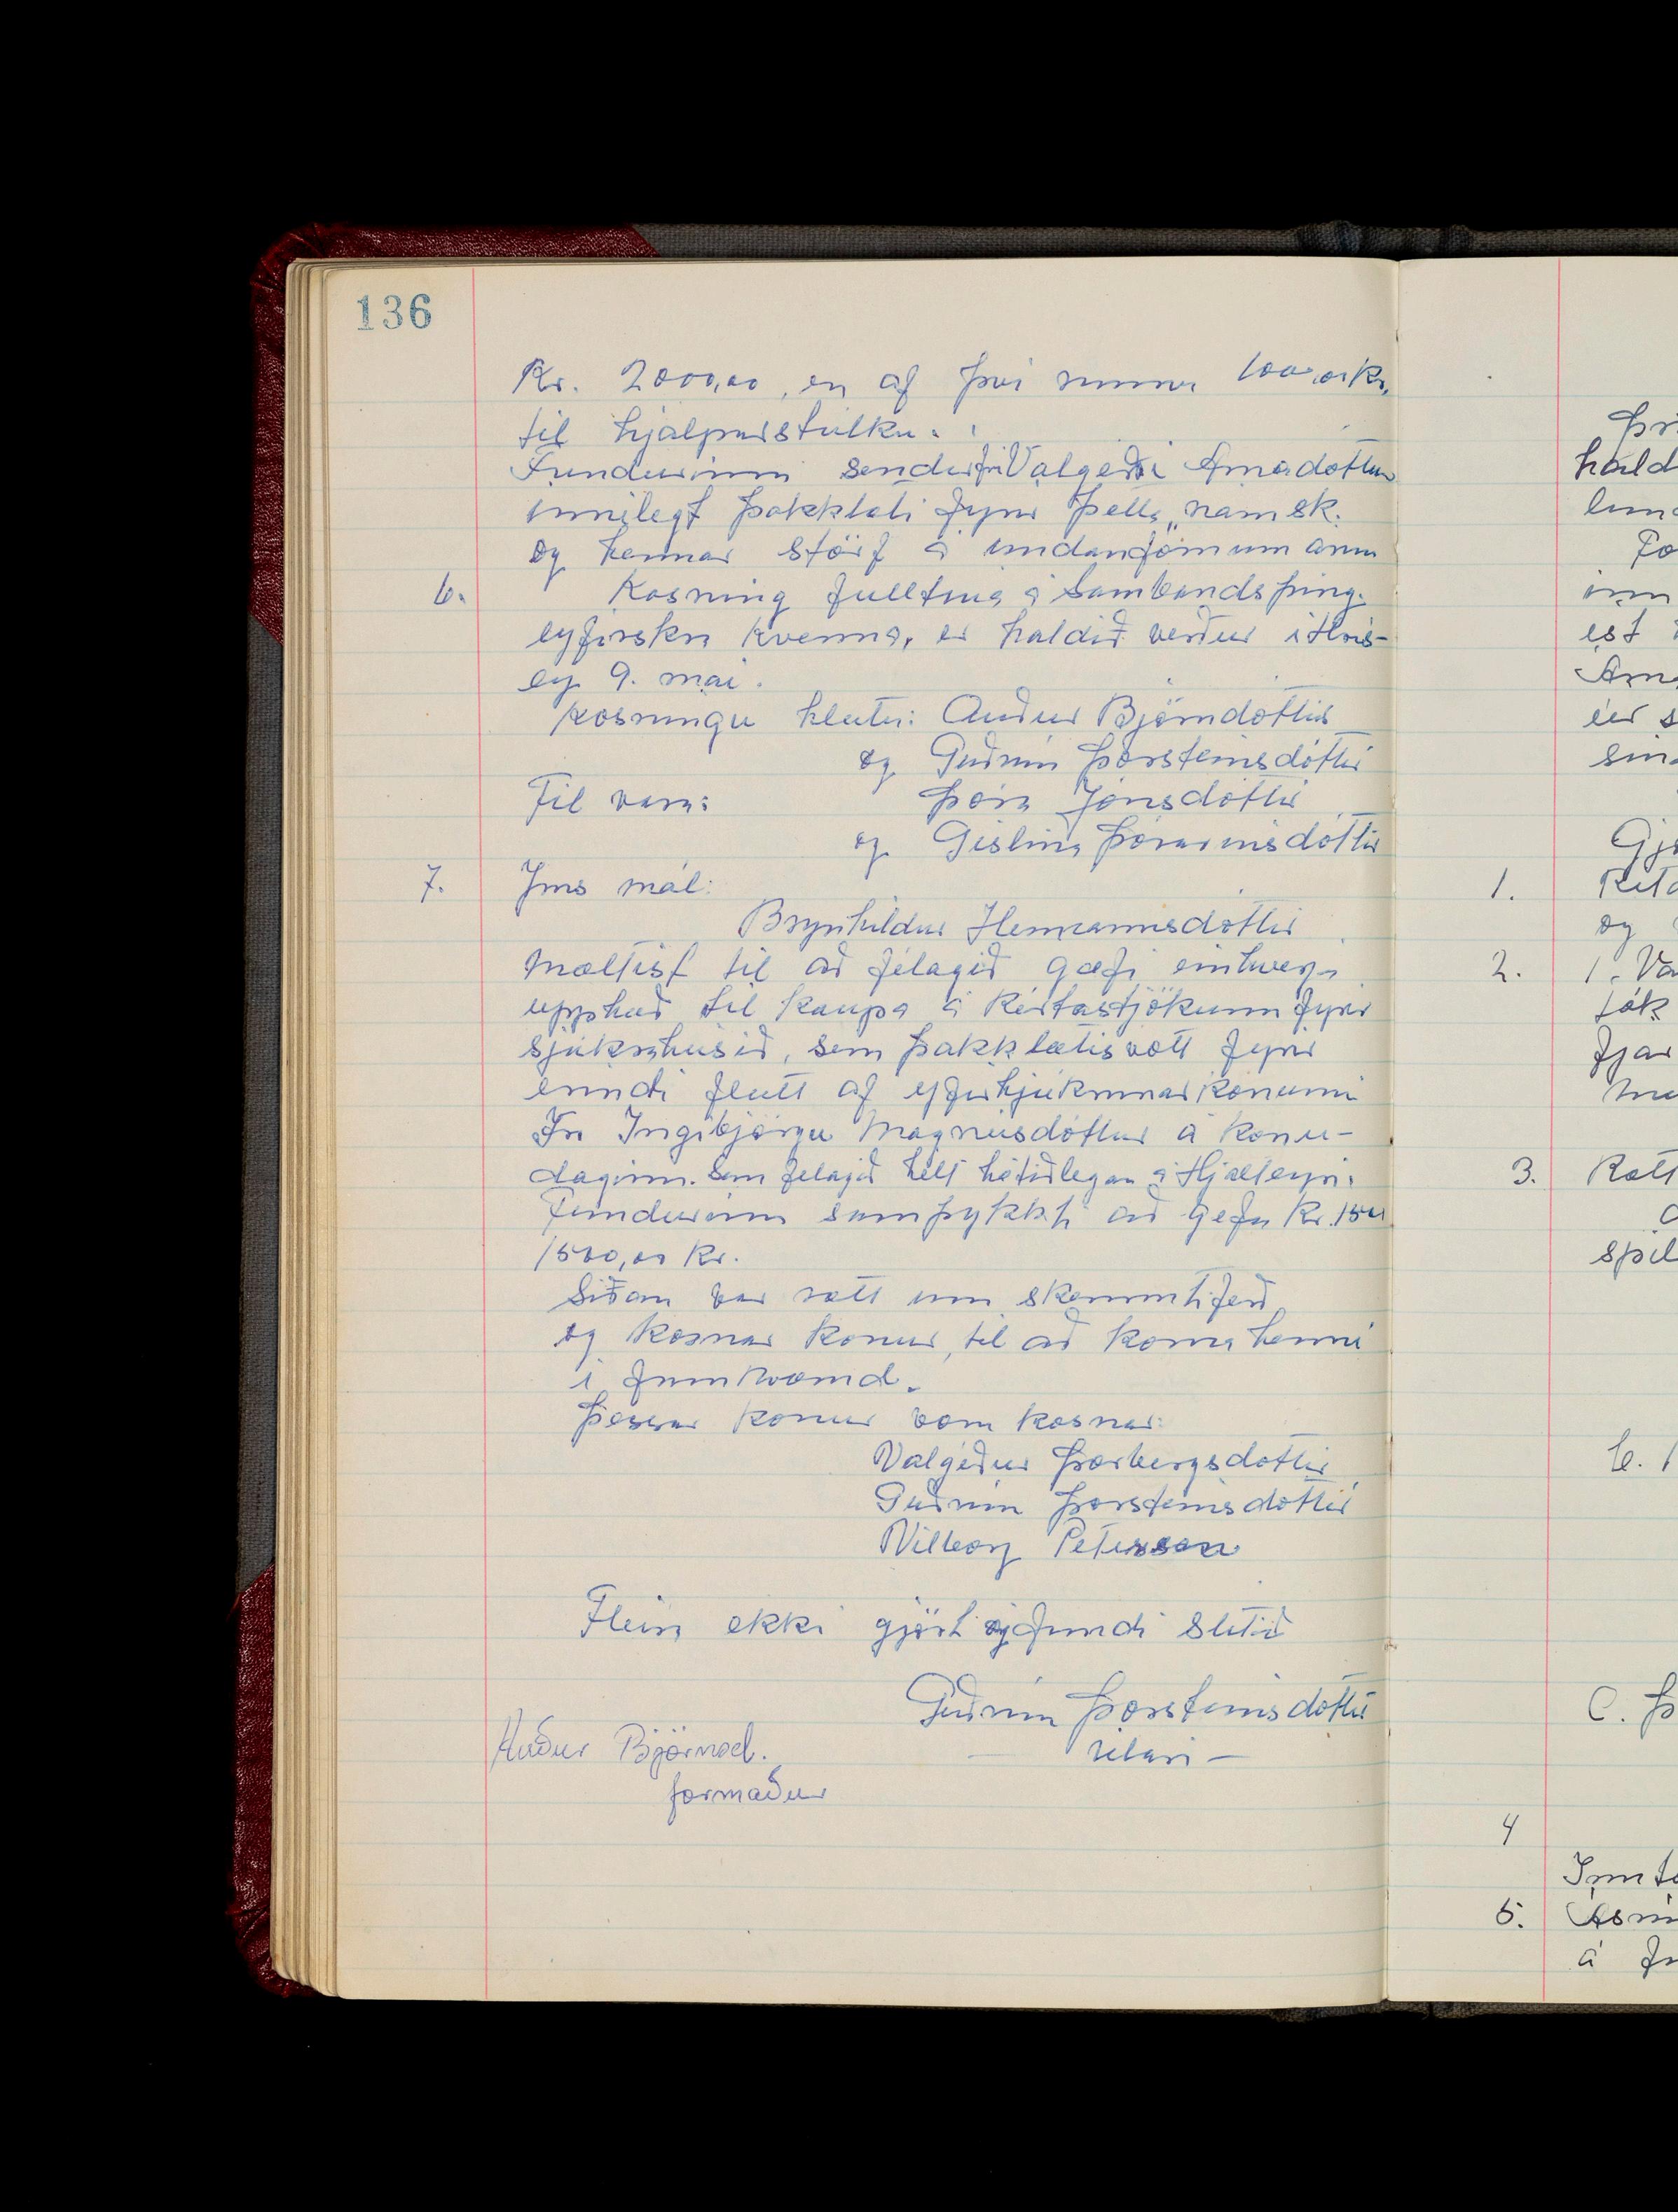 136
Kr. 2000,00, en af því renna 100,00 kr.
til hjálparstúlku.
Fundurinn sendir frú Valgerði Árnadóttur
innilegt þakklæti fyrir þetta námsk.
og hennar störf á undanförnum árum
6. Kosning fulltrúa á Sambandsþing
eyfirskra kvenna, er haldið verður í Hrís-
ey 9. maí.
Kosningu hlutu: Auður Björnsdóttir
og Guðrún Þorsteinsdóttir
Til vara: Þóra Jónsdóttir
og Gíslína Þórarinsdóttir
7. Ýms mál:
Brynhildur Hermannsdóttir
mæltist til að félagið gæfi einhverja
upphæð til kaupa á kertastjökum fyrir
sjúkrahúsið, sem þakklætisvott fyrir
erindi flutt af yfirhjúkrunarkonunni
Frú Ingibjörgu Magnúsdóttur á konu-
daginn. Sem félagið hélt hátíðlegan á Hjalteyri.
Fundurinn samþykkti að gefa Kr. 150
1500,00 Kr.
Síðan var rætt um skemmtiferð,
og kosnar konur, til að koma henni
í framkvæmd.
Þessar konur voru kosnar:
Valgerður Þorbergsdóttir
Guðrún Þorsteinsdóttir
Vilborg Petersson
Fleira ekki gjört og fundi slitið
Guðrún Þorsteinsdóttir
ritari –
Auður Björnsd.
formaður
hald
1.
og
2. 1. Va
tók
3.
spil
C. Þ
4
5.
á